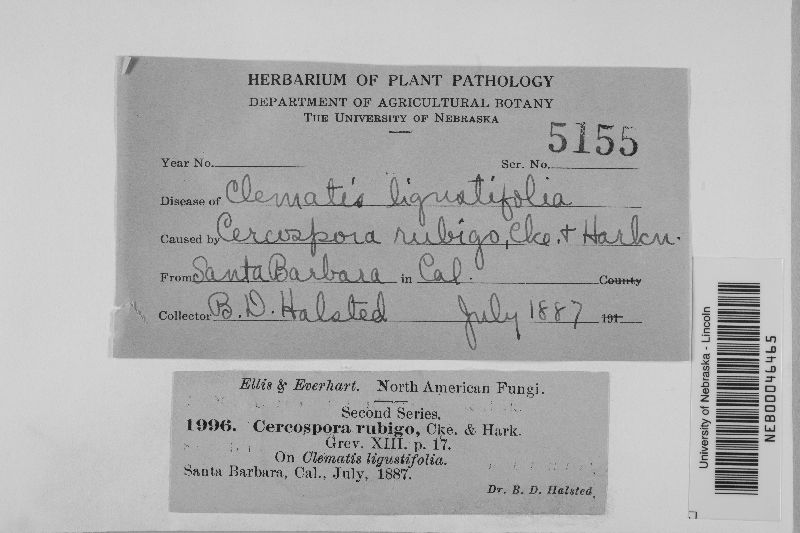 HERBARIUM OF PLANT PATHOLOGY
DEPARTMENT OF AGRICULTURAL BOTANY
THE UNIVERSITY OF NEBRASKA
5155
Year No. Ser. No.
Disease of Clematis ligustifolia
Caused by Cercospora rubigo, Cke. & Harkn.
From Santa Barbara in Cal. County
Collector B. D. Halsted July 1887 191
Ellis & Everhart. North American Fungi.
Second Series.
1996. Cercospora rubigo, Cke. & Hark.
Grev. XIII. p. 17.
On Clematis ligustifolia.
Santa Barbara, Cal., July, 1887.
Dr. B. D. Halsted.
University of Nebraska - Lincoln
NEB00046465